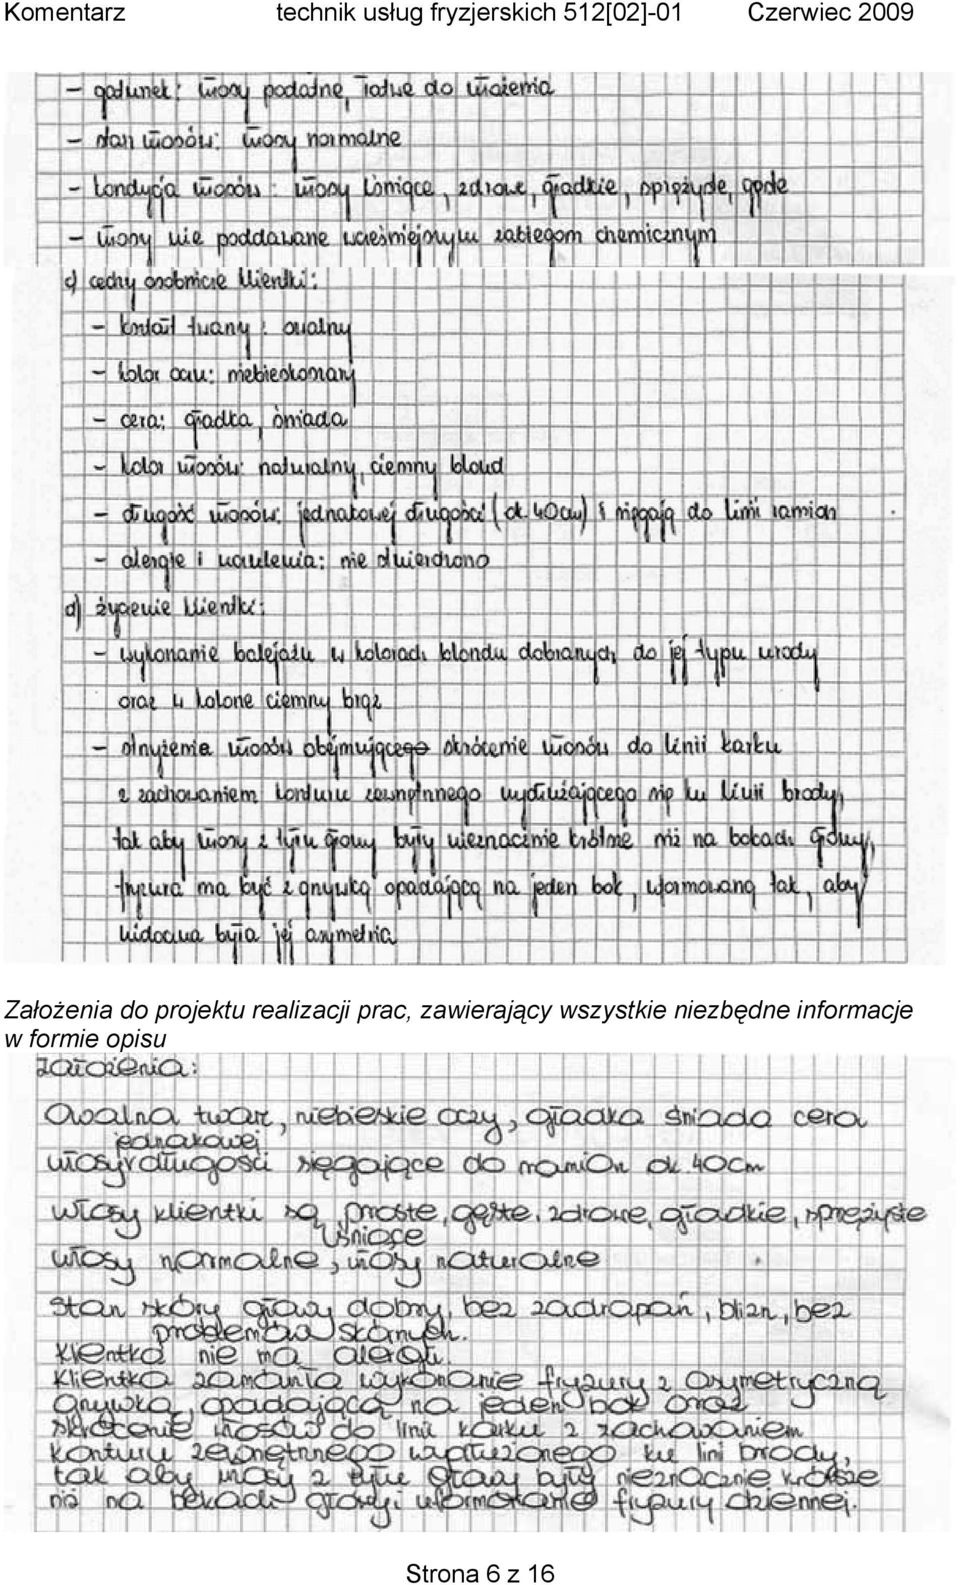 Komentarz technik usług fryzjerskich 512[02]-01 Czerwiec 2009
- gatunek: włosy podatne, łatwe do ułożenia
- stan włosów: włosy normalne
- kondycja włosów: włosy lśniące, zdrowe, gładkie, sprężyste, gęste
- włosy nie poddawane wcześniejszym zabiegom chemicznym
c) cechy osobnicze klientki:
- kształt twarzy: owalny
- kolor oczu: niebieskoszary
- cera: gładka, śniada
- kolor włosów: naturalny, ciemny blond
- długość włosów: jednakowej długości (ok. 40cm) i sięgają do linii ramion
- alergie i uczulenia: nie stwierdzono
d) życzenie klientki:
- wykonanie balejażu w kolorach blondu dobranych do jej typu urody
oraz w kolorze ciemny brąz
- strzyżenie włosów obejmującego skrócenie włosów do linii karku
z zachowaniem konturu zewnętrznego wydłużającego się ku linii brody,
tak aby włosy z tyłu głowy były nieznacznie krótsze niż na bokach głowy,
fryzura ma być z grzywką opadającą na jeden bok, uformowaną tak, aby
widoczna była jej asymetria
Założenia do projektu realizacji prac, zawierający wszystkie niezbędne informacje
w formie opisu
Założenia:
Owalna twarz, niebieskie oczy, gładka śniada cera
jednakowej
włosy długości sięgające do ramion ok. 40cm
Włosy klientki są proste, gęste, zdrowe, gładkie, sprężyste
lśniące
włosy normalne, włosy naturalne
Stan skóry głowy dobry, bez zadrapań, blizn, bez
problemów skórnych.
Klientka nie ma alergii.
Klientka zamówiła wykonanie fryzury z asymetryczną
grzywką, opadającą na jeden bok oraz
skrócenie włosów do linii karku z zachowaniem
konturu zewnętrznego wydłużonego ku lini brody,
tak aby włosy z tyłu głowy były nieznacznie krótsze
niż na bokach głowy i uformowanie fryzury dziennej.
Strona 6 z 16